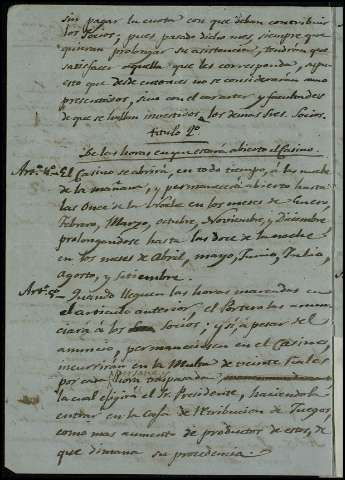 sin pagar la cuota con que deban contribuir
los Socios; pues pasado dicho mes, siempre que
quieran prolongar su asistencia, tendran que
satisfacer aquella que les corresponda, supu
esto que desde entonces no se considerarán como
presentados, sino con el caracter y facultades
de que se hallan investidos los demas Sres. Socios.
Titulo 2º
De las horas en que estará abierto el Casino.
Artº 4º El Casino se abrirá, en todo tiempo, á las nueve
de la mañana, y permanecerá abierto hasta
las Once de la noche en los meses de Enero,
Febrero, Marzo, octubre, Noviembre, y Diciembre
prolongandose hasta las doce de la noche
en los meses de Abril, mayo, Junio, Julio,
Agosto, y setiembre.
Artº 5º Quando lleguen las horas marcadas en
el articulo anterior, el Portero las anun
ciará á los Socios; y si, á pesar del
anuncio, permaneciesen en el Casino,
incurrirán en la Multa de veinte reales
por cada hora traspasada
la cual exijirá el Sr. Presidente, haciendola
entrar en la Caja de Retribucion de Juegos,
como mas aumento de productos de estos, de
que dimana su procedencia.